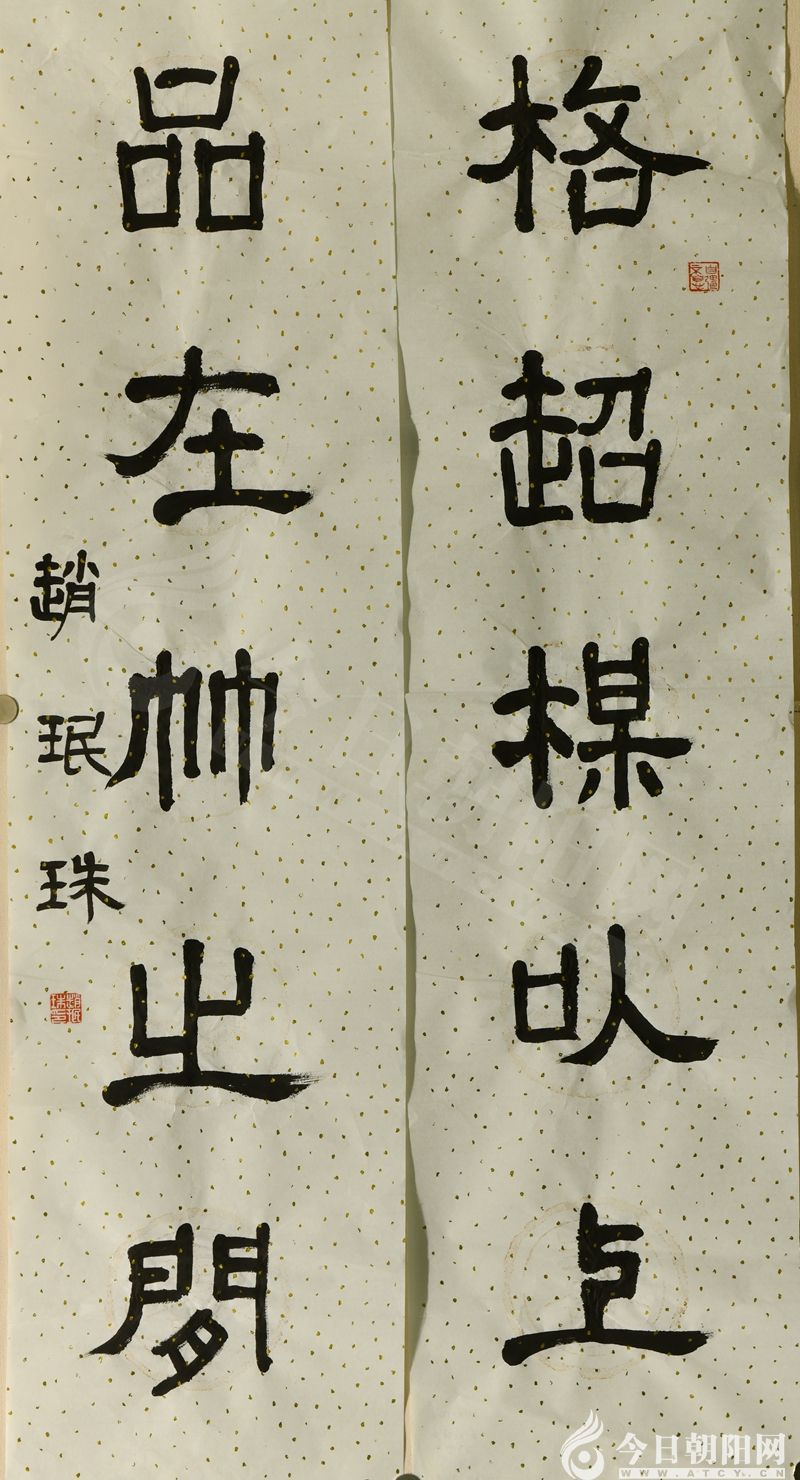 格超楳以上
品在竹之閒
趙珉珠
今日朝阳网
WWW.ATCY.CN